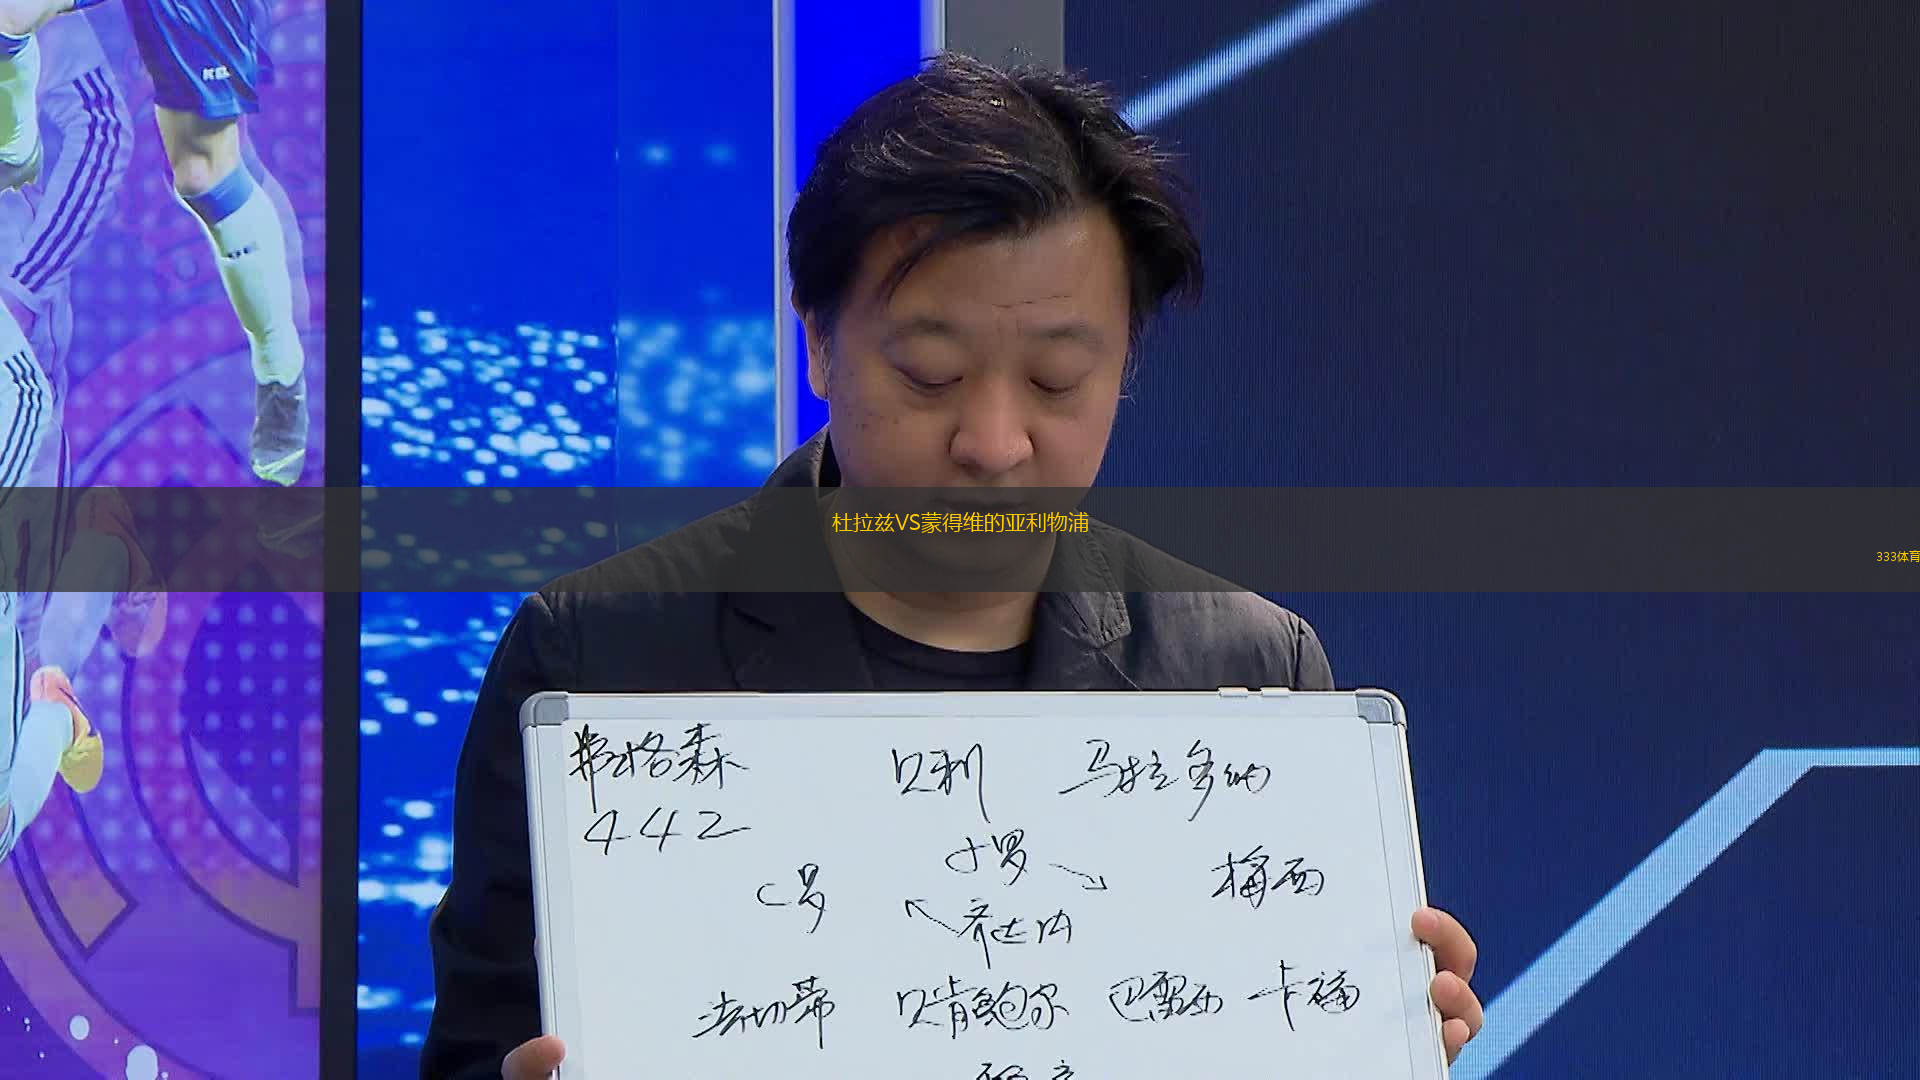 KEL
杜拉兹VS蒙得维的亚利物浦
333体育
弗格森 贝利 马拉多纳
442
小罗
C罗 梅西
齐达内
法切蒂 贝肯鲍尔 巴雷西 卡福